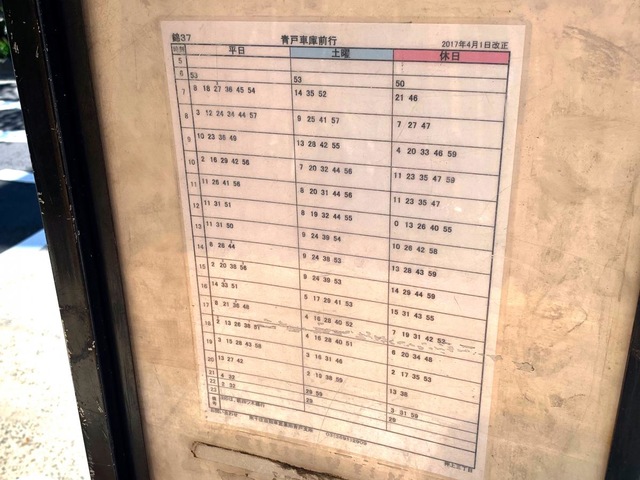 錦37 青戸車庫前行 2017年4月1日改正
時間 平日 土曜 休日
5
6 53 53 50
7 8 18 27 36 45 54 14 35 52 21 46
8 3 12 24 24 44 57 9 25 41 57 7 27 47
9 10 23 36 49 13 28 42 55 4 20 33 46 59
10 2 16 29 42 56 7 20 32 44 56 11 23 35 47 59
11 11 26 41 56 8 20 31 44 56 11 23 35 47
12 11 31 51 8 19 32 44 55 0 13 26 40 55
13 11 31 50 9 24 39 54 10 26 42 58
14 8 28 44 9 24 38 53 13 28 43 59
15 2 20 38 56 9 24 39 53 14 29 44 59
16 14 33 51 5 17 29 41 53 15 31 43 55
17 8 21 36 48 4 16 28 40 52 7 19 31 42 53
18 2 13 26 38 51 4 16 28 40 51 6 20 34 48
19 3 15 28 43 58 3 16 31 46 2 17 35 53
20 13 27 42 2 19 38 59 13 36
21 4 32 29 59 3 31 59
22 2 32 29 28
23